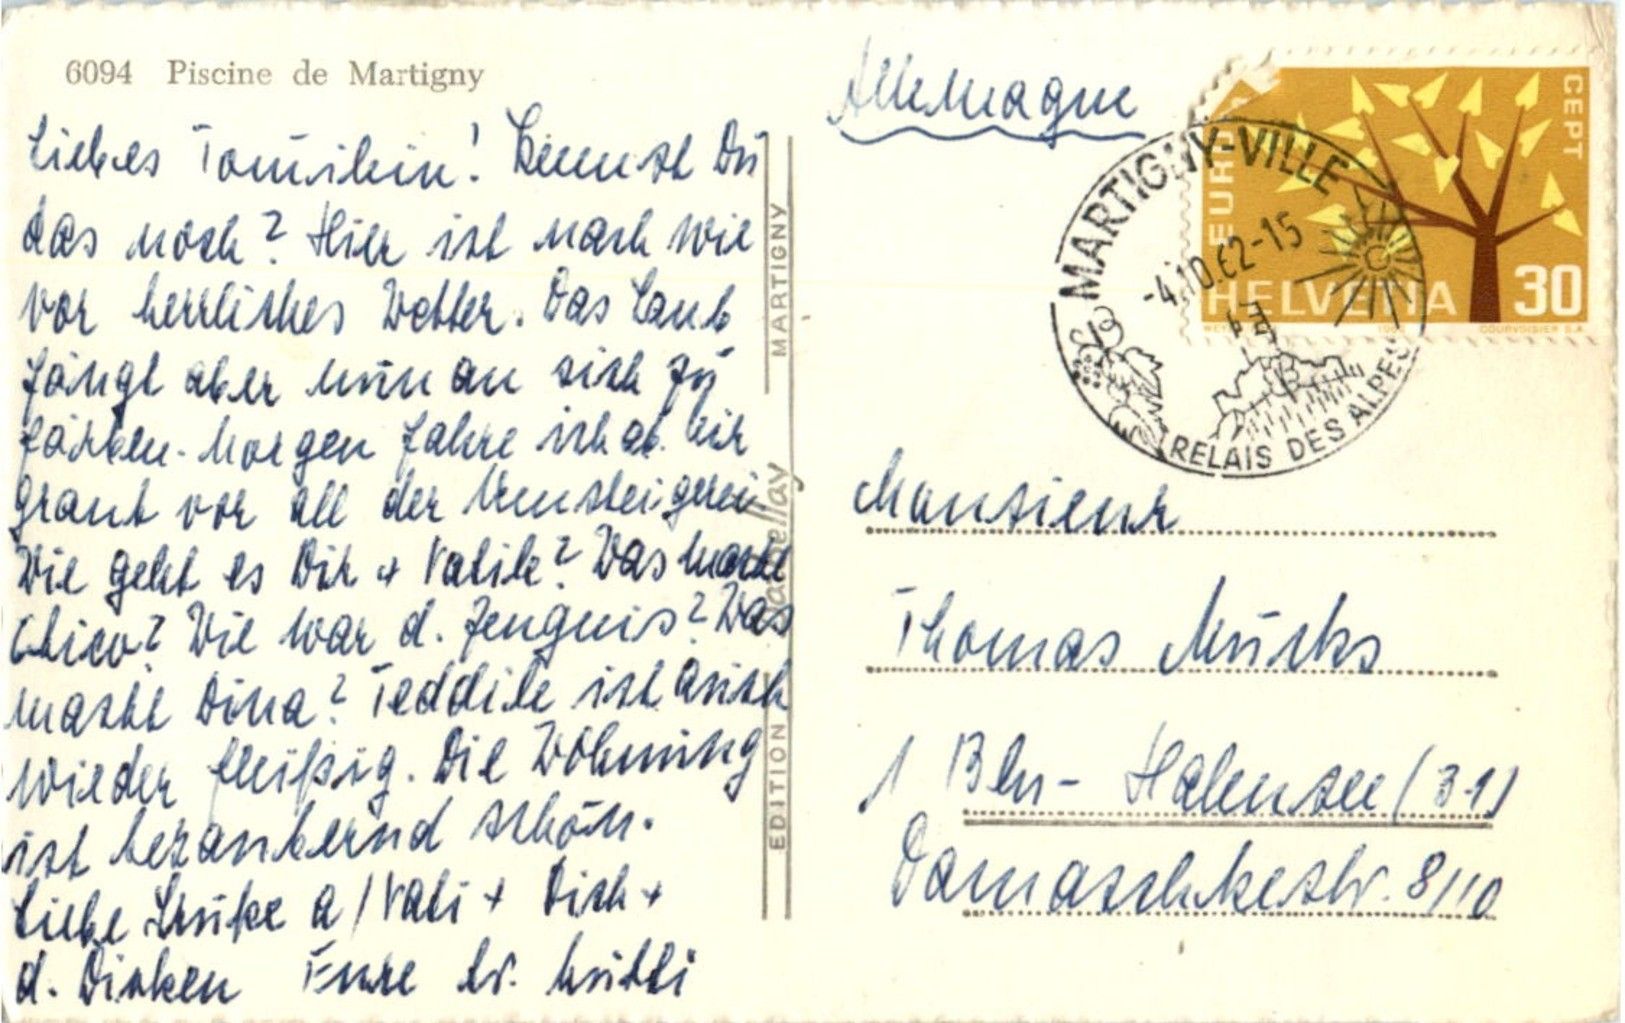 6094 Piscine de Martigny
Liebes Tomilein! Kennst Du
das noch? Hier ist nach wie
vor herrliches Wetter. Das Laub
fängt aber nun an sich zu
färben. Morgen fahre ich ab. Mir
graut vor all der Umsteigerei
Wie geht es Dir + Vatile? Was macht
Chico? Wie war d. Zeugnis? Was
macht Dina? Teddile ist auch
wieder fleißig. Die Wohnung
ist bezaubernd schön.
Liebe Grüße a/Vati + Dich +
d. Dicken Eure tr. Mutti
EDITION MARTIGNY
Allemagne
EUROPA CEPT
HELVETIA 30
1962 COURVOISIER S.A.
MARTIGNY-VILLE
-4.10.62-15
RELAIS DES ALPES
Monsieur
Thomas
1 Bln-Halensee (31)
Damaschkestr. 8/10